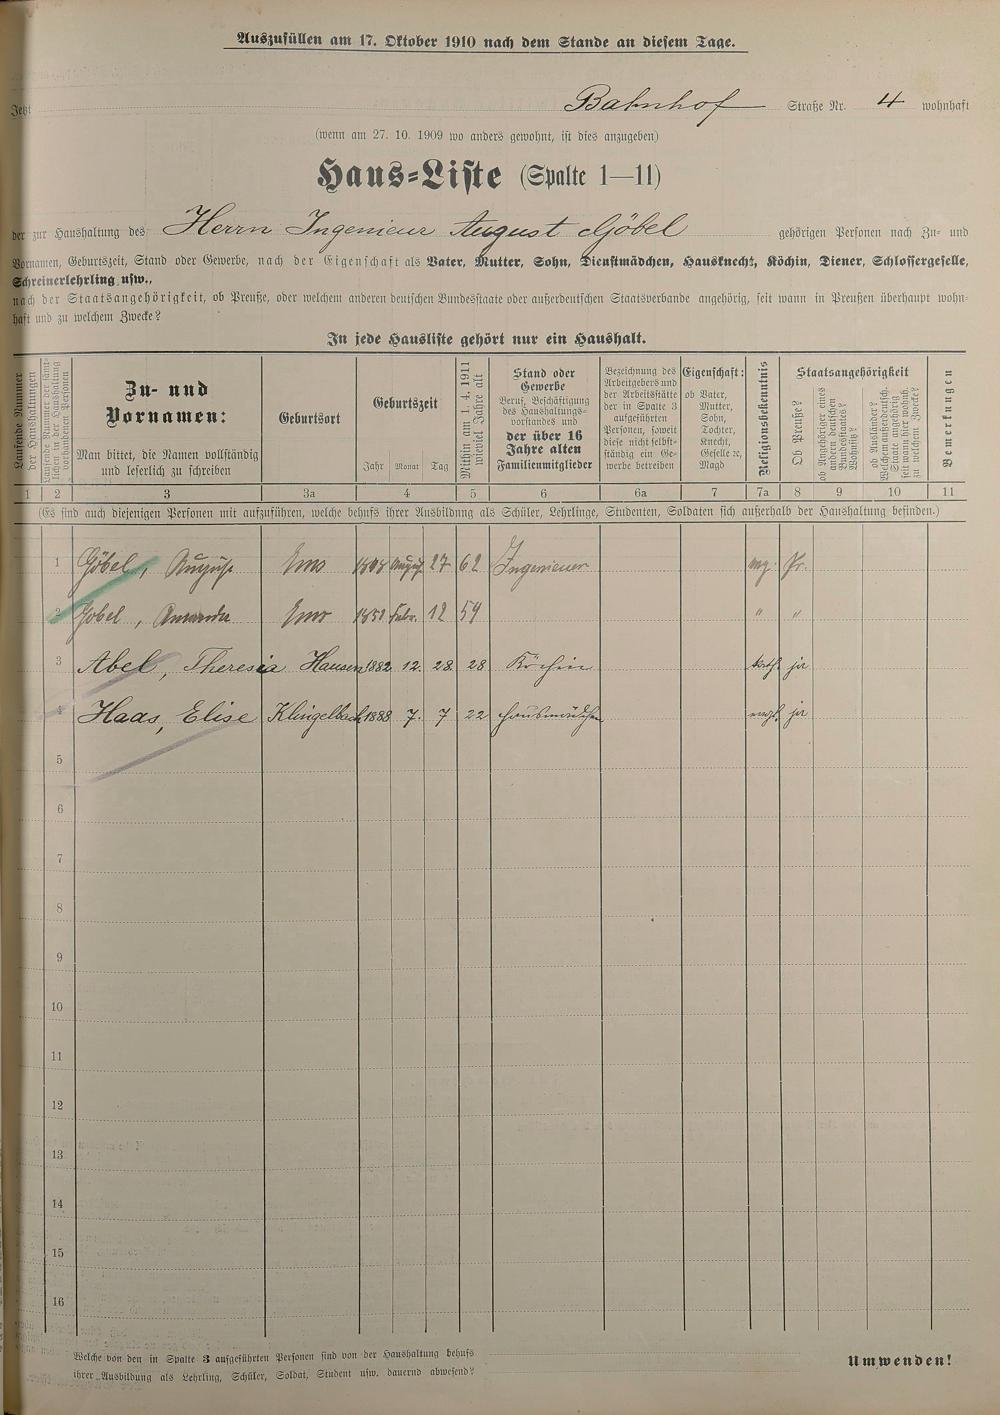 Auszufüllen am 17. Oktober 1910 nach dem Stande an diesem Tage.
Jetzt Bahnhof Straße Nr. 4 wohnhaft
(wenn am 27. 10. 1909 wo anders gewohnt, ist dies anzugeben)
Haus-Liste (Spalte 1—11)
der zur Haushaltung des Herrn Ingenieur August Göbel gehörigen Personen nach Zu- und
Vornamen, Geburtszeit, Stand oder Gewerbe, nach der Eigenschaft als Vater, Mutter, Sohn, Dienstmädchen, Hausknecht, Köchin, Diener, Schlossergeselle,
Schreinerlehrling usw.,
nach der Staatsangehörigkeit, ob Preuße, oder welchem anderen deutschen Bundesstaate oder außerdeutschen Staatsverbande angehörig, seit wann in Preußen überhaupt wohn-
haft und zu welchem Zwecke?
In jede Hausliste gehört nur ein Haushalt.
Laufende Nummer
der Haushaltungen
Laufende Nummer der sämt-
lichen in der Haushaltung
vorhandenen Personen
Zu- und
Vornamen:
Man bittet, die Namen vollständig
und leserlich zu schreiben
Geburtsort
Geburtszeit
Jahr Monat Tag
Mithin am 1. 4. 1911
wieviel Jahre alt
Stand oder
Gewerbe
Beruf, Beschäftigung
des Haushaltungs-
vorstandes und
der über 16
Jahre alten
Familienmitglieder
Bezeichnung des
Arbeitgebers und
der Arbeitsstätte
der in Spalte 3
aufgeführten
Personen, soweit
diese nicht selbst-
ständig ein Ge-
werbe betreiben
Eigenschaft:
ob Vater,
Mutter,
Sohn,
Tochter,
Knecht,
Geselle ꝛc,
Magd
Religionsbekenntnis
Staatsangehörigkeit
Ob Preuße?
ob Angehöriger eines
andern deutschen
Bundesstaates?
Wohnsitz?
ob Ausländer?
Welchem außerdeutsch.
Staate angehörig
seit wann hier wohnh.
zu welchem Zwecke?
Bemerkungen
1 2 3 3a 4 5 6 6a 7 7a 8 9 10 11
(Es sind auch diejenigen Personen mit aufzuführen, welche behufs ihrer Ausbildung als Schüler, Lehrlinge, Studenten, Soldaten sich außerhalb der Haushaltung befinden.)
1 Göbel, August Ems 1848 August 27 62 Ingenieur evg. Pr.
2 Göbel, Amanda Ems 1852 Febr. 12 59 " "
3 Abel, Theresia Hausen 1882 12. 28. 28 Köchin kath. ja
4 Haas, Elise Klingelbach 1888 7. 7 22 Hausmädchen evgl. ja
5
6
7
8
9
10
11
12
13
14
15
16
Welche von den in Spalte 3 aufgeführten Personen sind von der Haushaltung behufs
ihrer Ausbildung als Lehrling, Schüler, Soldat, Student usw. dauernd abwesend?
Umwenden!